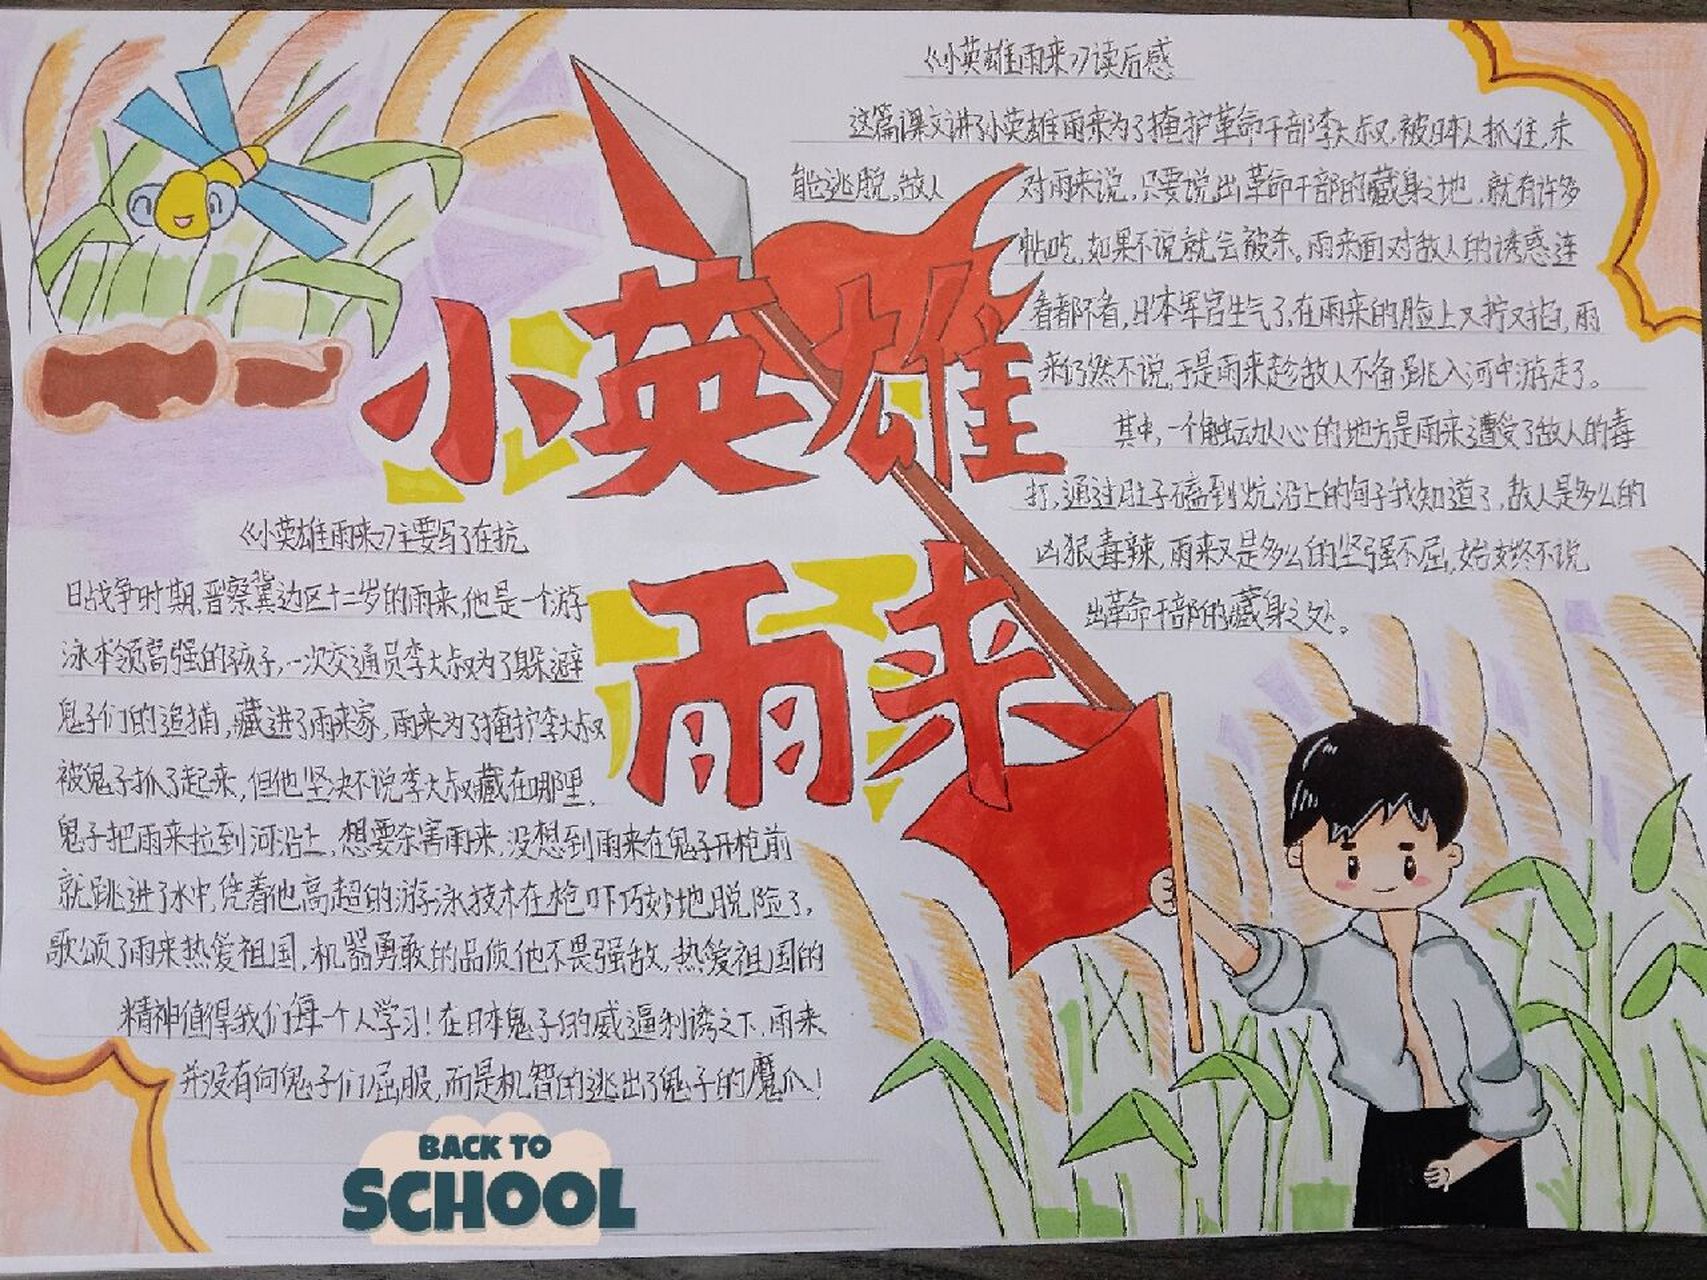 《小英雄雨来》读后感
这篇课文讲了小英雄雨来为了掩护革命干部李大叔,被日本人抓住,未
能逃脱。敌人 对雨来说,只要说出革命干部的藏身之地,就有许多
帖吃,如果不说就会被杀。雨来面对敌人的诱惑连
看都不看,日本军官生气了,在雨来的脸上又拧又拍,雨
来仍然不说,于是雨来趁敌人不备跳入河中游走了。
其中,一个触动人心的地方是雨来遭受了敌人的毒
打,通过肚子磕到炕沿上的句子我知道了,敌人是多么的
凶狠毒辣,雨来又是多么的坚强不屈,始终不说
出革命干部的藏身之处。
小英雄
雨来
《小英雄雨来》主要写了在抗
日战争时期,晋察冀边区十二岁的雨来,他是一个游
泳本领高强的孩子,一次交通员李大叔为了躲避
鬼子们的追捕,藏进了雨来家,雨来为了掩护李大叔
被鬼子抓了起来,但他坚决不说李大叔藏在哪里,
鬼子把雨来拉到河沿上,想要杀害雨来,没想到雨来在鬼子开枪前
就跳进了水中,凭着他高超的游泳技术在枪下巧妙地脱险了,
歌颂了雨来热爱祖国,机器勇敢的品质他不畏强敌,热爱祖国的
精神值得我们每一个人学习!在日本鬼子的威逼利诱之下,雨来
并没有向鬼子们屈服,而是机智的逃出了鬼子的魔爪!
BACK TO
SCHOOL